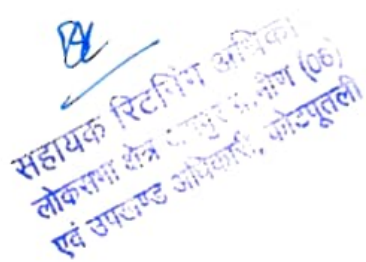 सहायक रिटर्निंग अधिका
लोकसभा क्षेत्र ग्रामीण (06)
एवं उपखण्ड अधिकारी, कोटपूतली